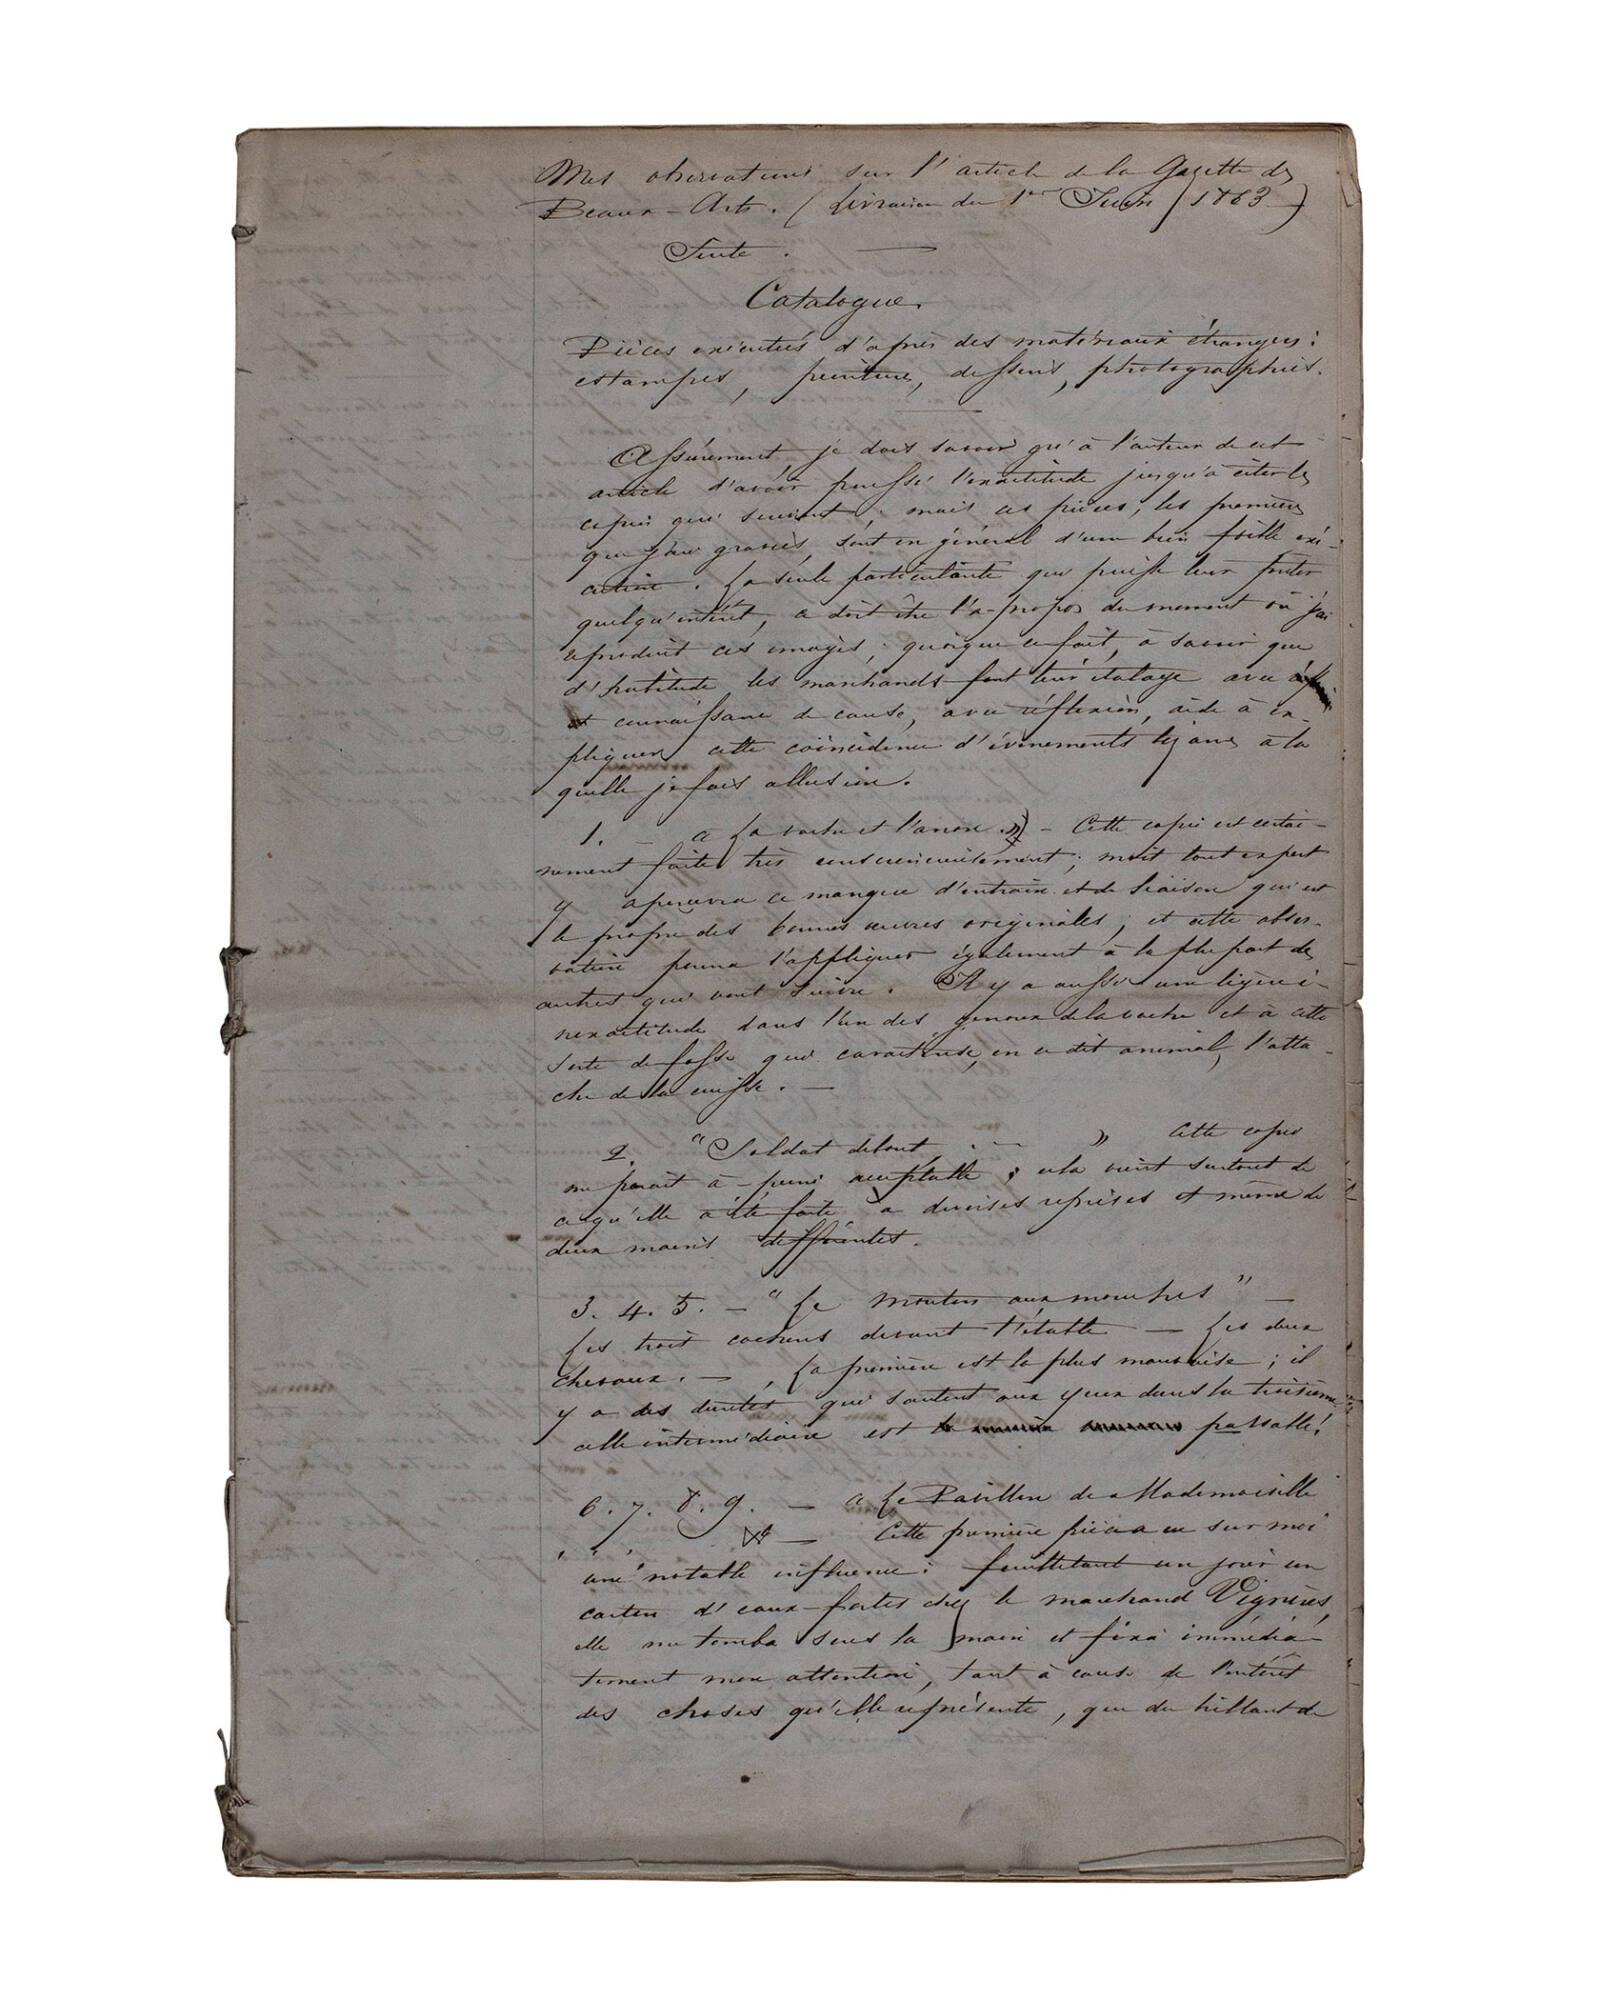 Mes observations sur l'article de la Gazette des
Beaux-Arts. (Livraison du 1er Juin 1863)
Suite.
Catalogue.
Pièces exécutées d'après des matériaux étrangers:
estampes, peintures, dessins, photographies.
Assurément je dois savoir gré à l'auteur de cet
article d'avoir poussé l'exactitude jusqu'à citer les
copies qui suivent; mais ces pièces, les premières
que j'aie gravées, sont en général d'une bien faible exé-
cution. La seule particularité qui puisse leur prêter
quelqu'intérêt, ce doit être l'à-propos du moment où j'ai
reproduit ces images; quoique ce fait, à savoir que
d'habitude les marchands font leur étalage avec
et connaissance de cause, avec réflexion, aide à ex-
pliquer cette coïncidence d'évènements à la
quelle je fais allusion.
1. - « La vache et l'ânon » - Cette copie est certai-
nement faite très consciencieusement; mais tout expert
y apercevra ce manque d'entrain et de liaison qui est
le propre des bonnes œuvres originales; et cette obser-
vation pourra s'appliquer également à la plupart des
autres qui vont suivre. Il y a aussi une légère i-
nexactitude dans l'un des genoux de la vache et à cette
sorte de fosse qui caractérise, en ce dit animal, l'atta-
che de la cuisse. -
2. "Soldat debout, . - - » Cette copie
me paraît à-peine acceptable; cela vient surtout de
ce qu'elle a été faite à diverses reprises et même de
deux mains différentes.
3. 4. 5. - "Le mouton aux mouches" -
Les trois cochons devant l'étable - Les deux
chevaux. -, La première est la plus mauvaise; il
y a des duretés qui sautent aux yeux dans la troisième
celle intermédiaire est passable!
6. 7. 8. 9. - « Le Pavillon de Mademoiselle
- Cette première pièce a eu sur moi
une notable influence: feuilletant un jour un
carton d'eaux-fortes chez le marchand Vignères,
elle me tomba sous la main et fixa immédia-
tement mon attention, tant à cause de l'intérêt
des choses qu'elle représente, que du brillant de